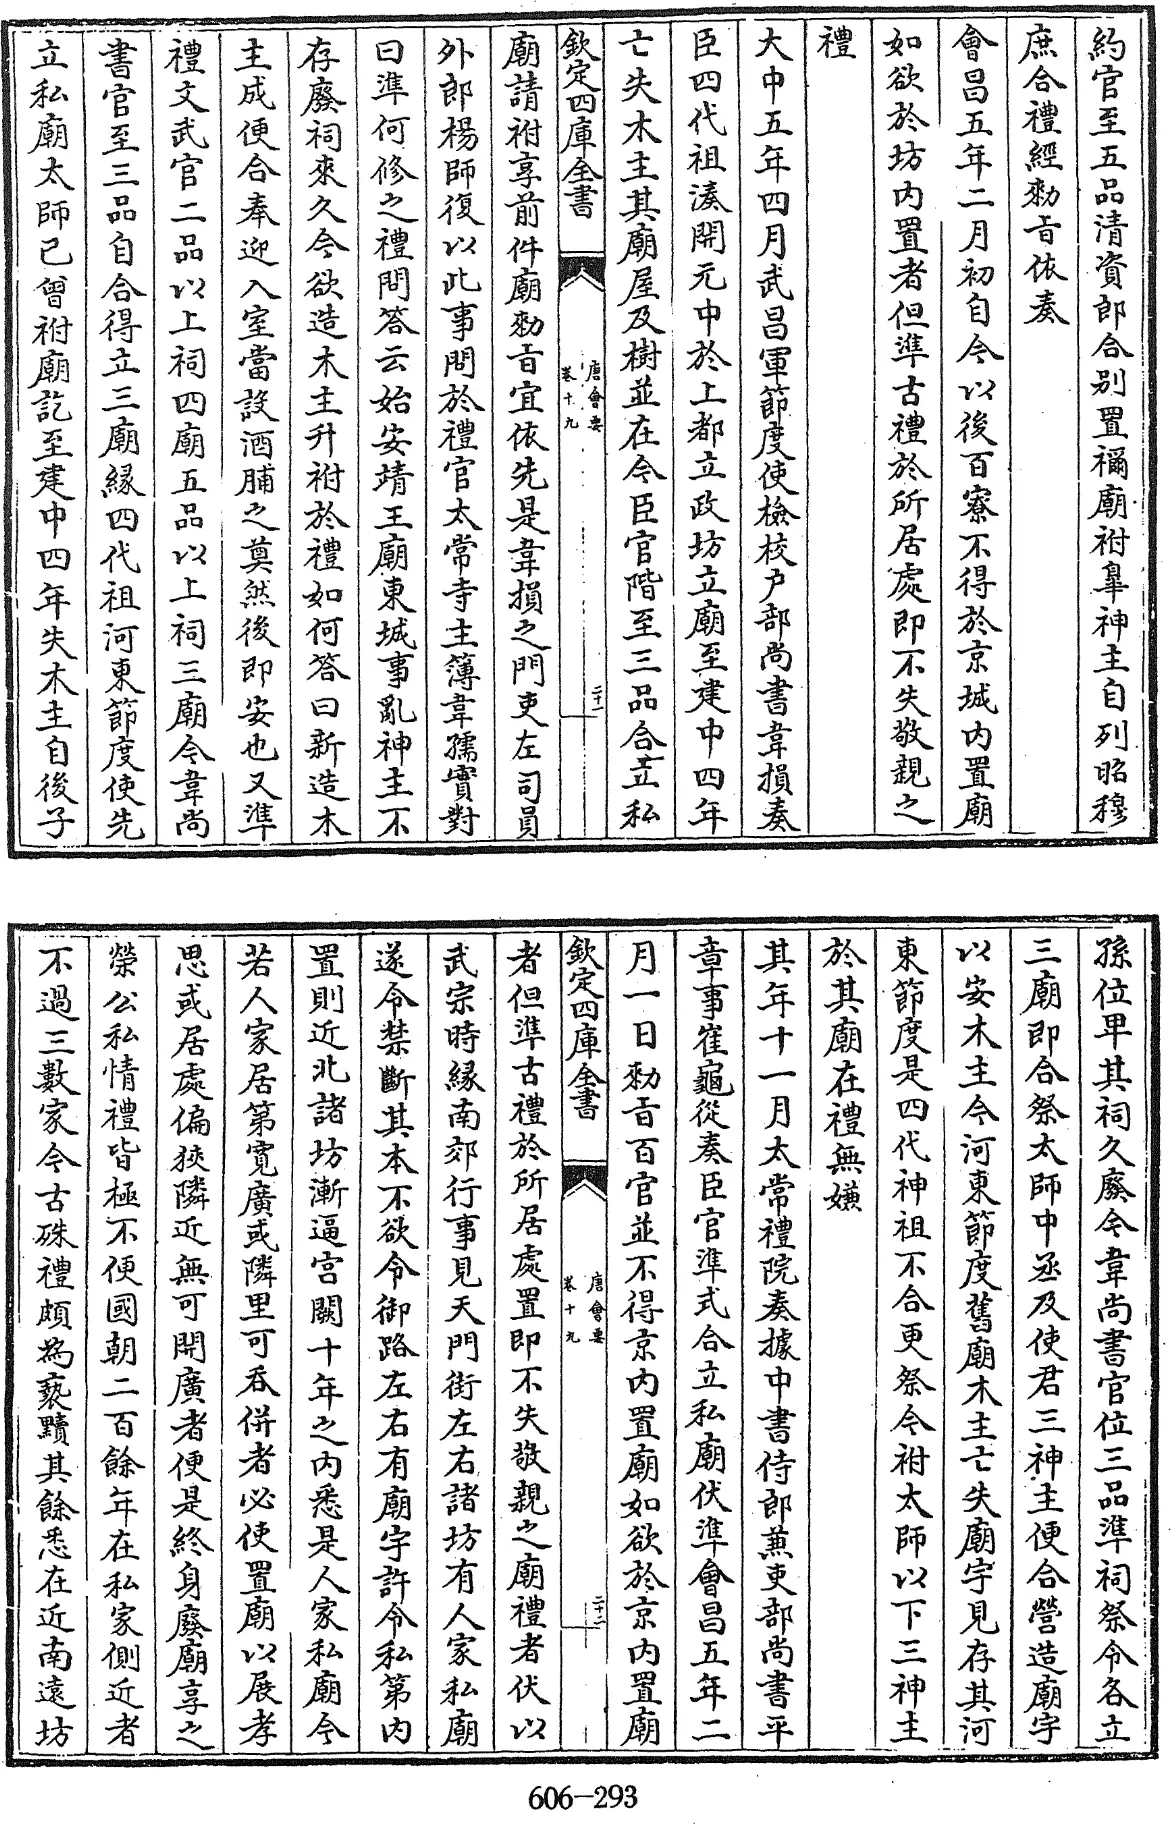 約官至五品清資郎合別置禰廟祔皐神主自列昭穆
庶合禮經勅旨依奏
會昌五年二月初自今以後百寮不得於京城內置廟
如欲於坊內置者但準古禮於所居處即不失敬親之
禮
大中五年四月武昌軍節度使檢校户部尚書韋損奏
臣四代祖湊開元中於上都立政坊立廟至建中四年
亡失木主其廟屋及樹並在今臣官階至三品合立私
欽定四庫全書
唐會要
卷十九
二十一
廟請祔享前件廟勅旨宜依先是韋損之門吏左司員
外郎楊師復以此事問於禮官太常寺主簿韋孺實對
曰準何修之禮問答云始安靖王廟東城事亂神主不
存廢祠來久今欲造木主升祔於禮如何答曰新造木
主成便合奉迎入室當設酒脯之奠然後即安也又準
禮文武官二品以上祠四廟五品以上祠三廟今韋尚
書官至三品自合得立三廟緣四代祖河東節度使先
立私廟太師已曾祔廟訖至建中四年失木主自後子
孫位卑其祠久廢今韋尚書官位三品準祠祭令各立
三廟即合祭太師中丞及使君三神主便合營造廟宇
以安木主今河東節度舊廟木主亡失廟宇見存其河
東節度是四代神祖不合更祭今祔太師以下三神主
於其廟在禮無嫌
其年十一月太常禮院奏據中書侍郎兼吏部尚書平
章事崔龜從奏臣官準式合立私廟伏準會昌五年二
月一日勅旨百官並不得京內置廟如欲於京內置廟
欽定四庫全書
唐會要
卷十九
二十二
者但準古禮於所居處置即不失敬親之廟禮者伏以
武宗時緣南郊行事見天門街左右諸坊有人家私廟
遂令禁斷其本不欲令御路左右有廟宇許令私第內
置則近北諸坊漸逼宮闕十年之內悉是人家私廟今
若人家居第寛廣或隣里可吞併者必使置廟以展孝
思或居處偏狹隣近無可開廣者便是終身廢廟享之
榮公私情禮皆極不便國朝二百餘年在私家側近者
不過三數家今古殊禮頗為褻黷其餘悉在近南遠坊
606-293